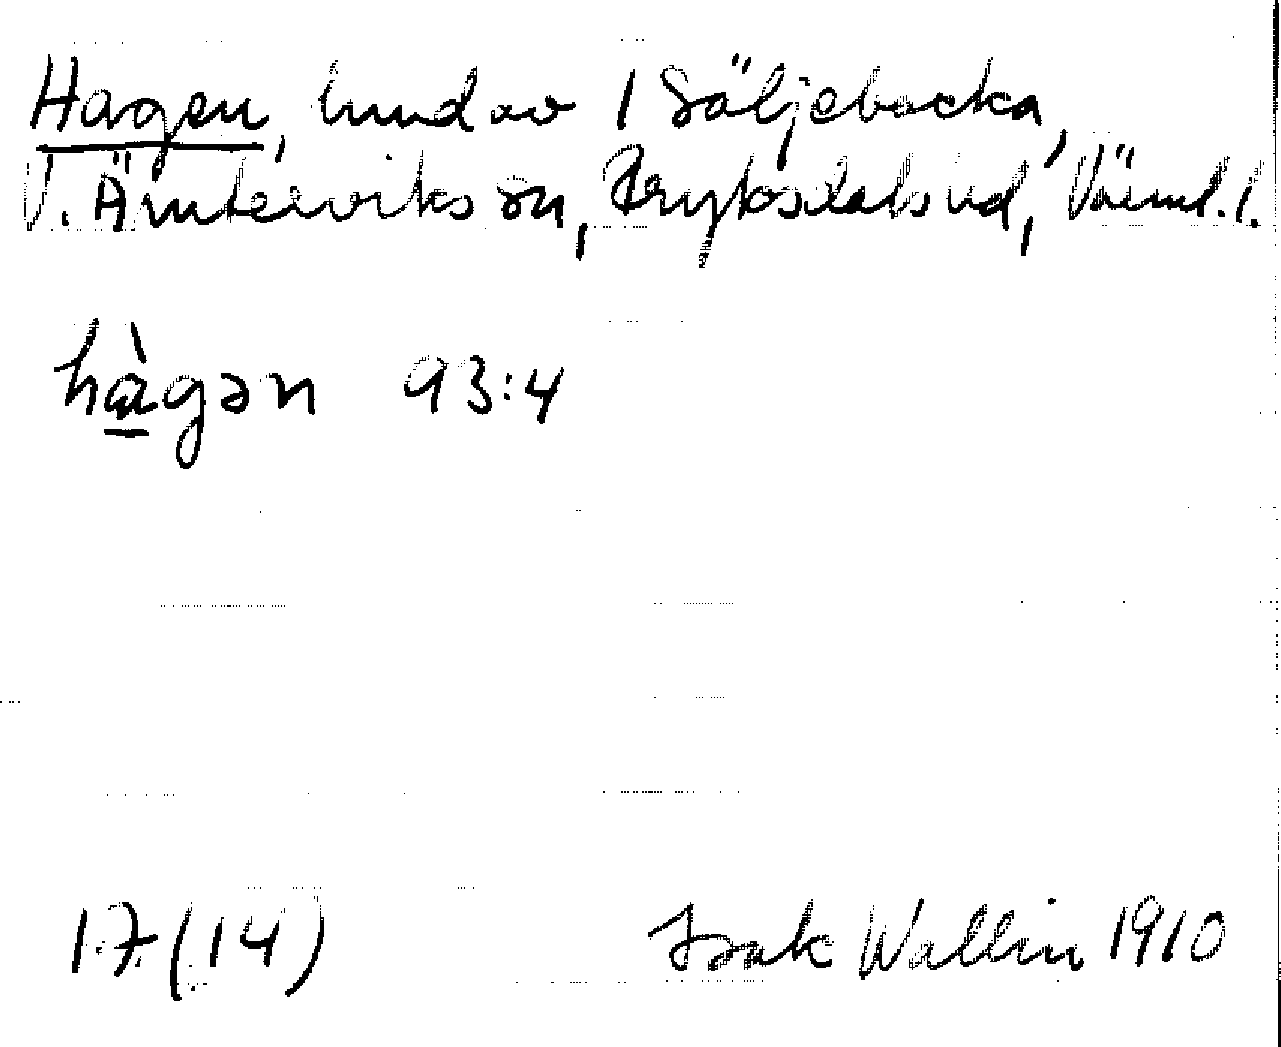 Hagen, hmd av 1 Säljebacka,
V. Ämterviks sn, Fryksdals hd, Värml. l.
hàgən 93:4
17 (14)
Isak Wallin 1910